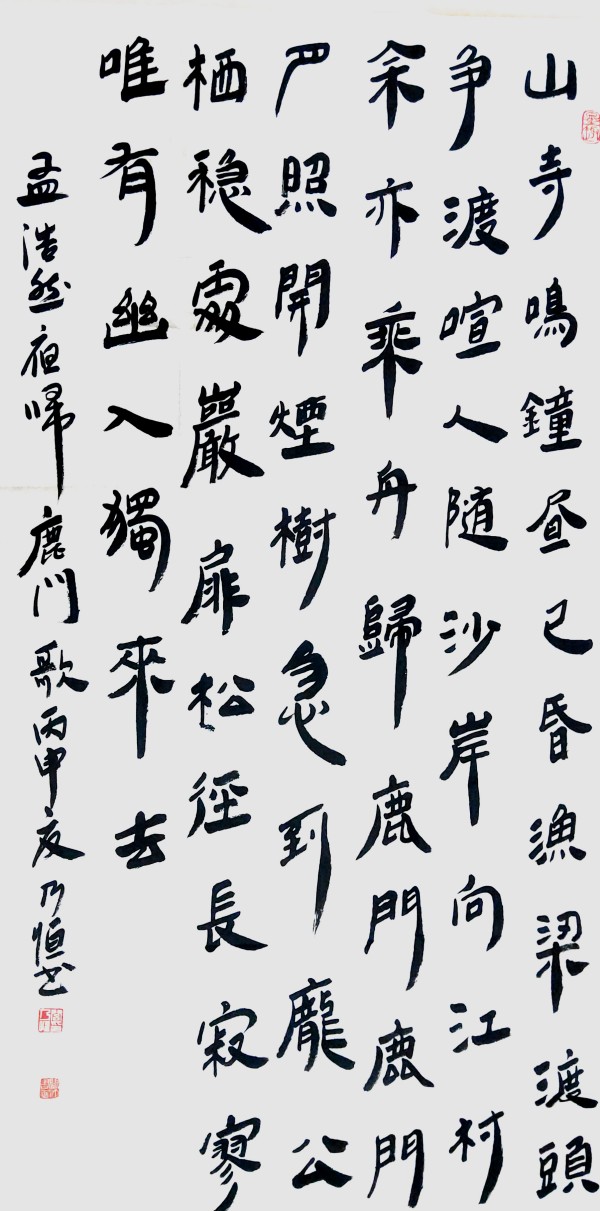 山寺鳴鐘昼已昏漁梁渡頭
争渡喧人随沙岸向江村
余亦乘舟歸鹿門鹿門
月照開煙樹忽到龐公
栖稳處巖扉松徑長寂寥
唯有幽人獨來去
孟浩然夜帰鹿门歌丙申夏乃恒书